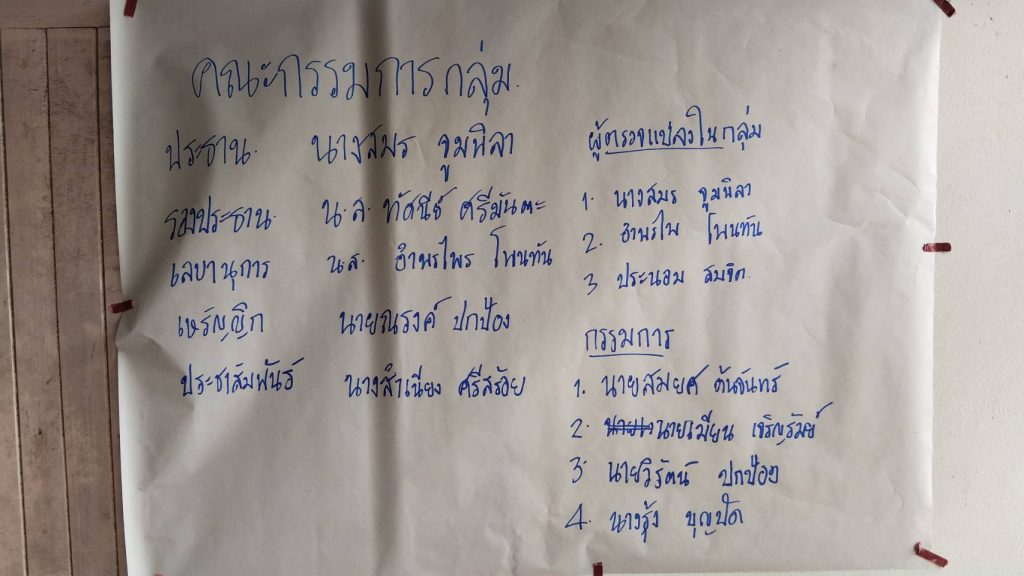 คณะกรรมการกลุ่ม.
ประธาน. นางสมร จูมพิลา
รองประธาน. น.ส. ทัศนีย์ ศรีมันตะ
เลขานุการ น.ส. อำพรไพร โพนทัน
เหรัญญิก นายณรงค์ ปกป้อง
ประชาสัมพันธ์ นางสำเนียง ศรีสร้อย
ผู้ตรวจแปลงในกลุ่ม
1. นางสมร จูมพิลา
2. อำพรไพ โพนทัน
3 ประนอม สมจิต.
กรรมการ
1. นายสมยศ ต้นจันทร์
2. นายเมียน เจริญรัมย์
3. นายวิรัตน์ ปกป้อง
4. นางรุ้ง บุญปัด